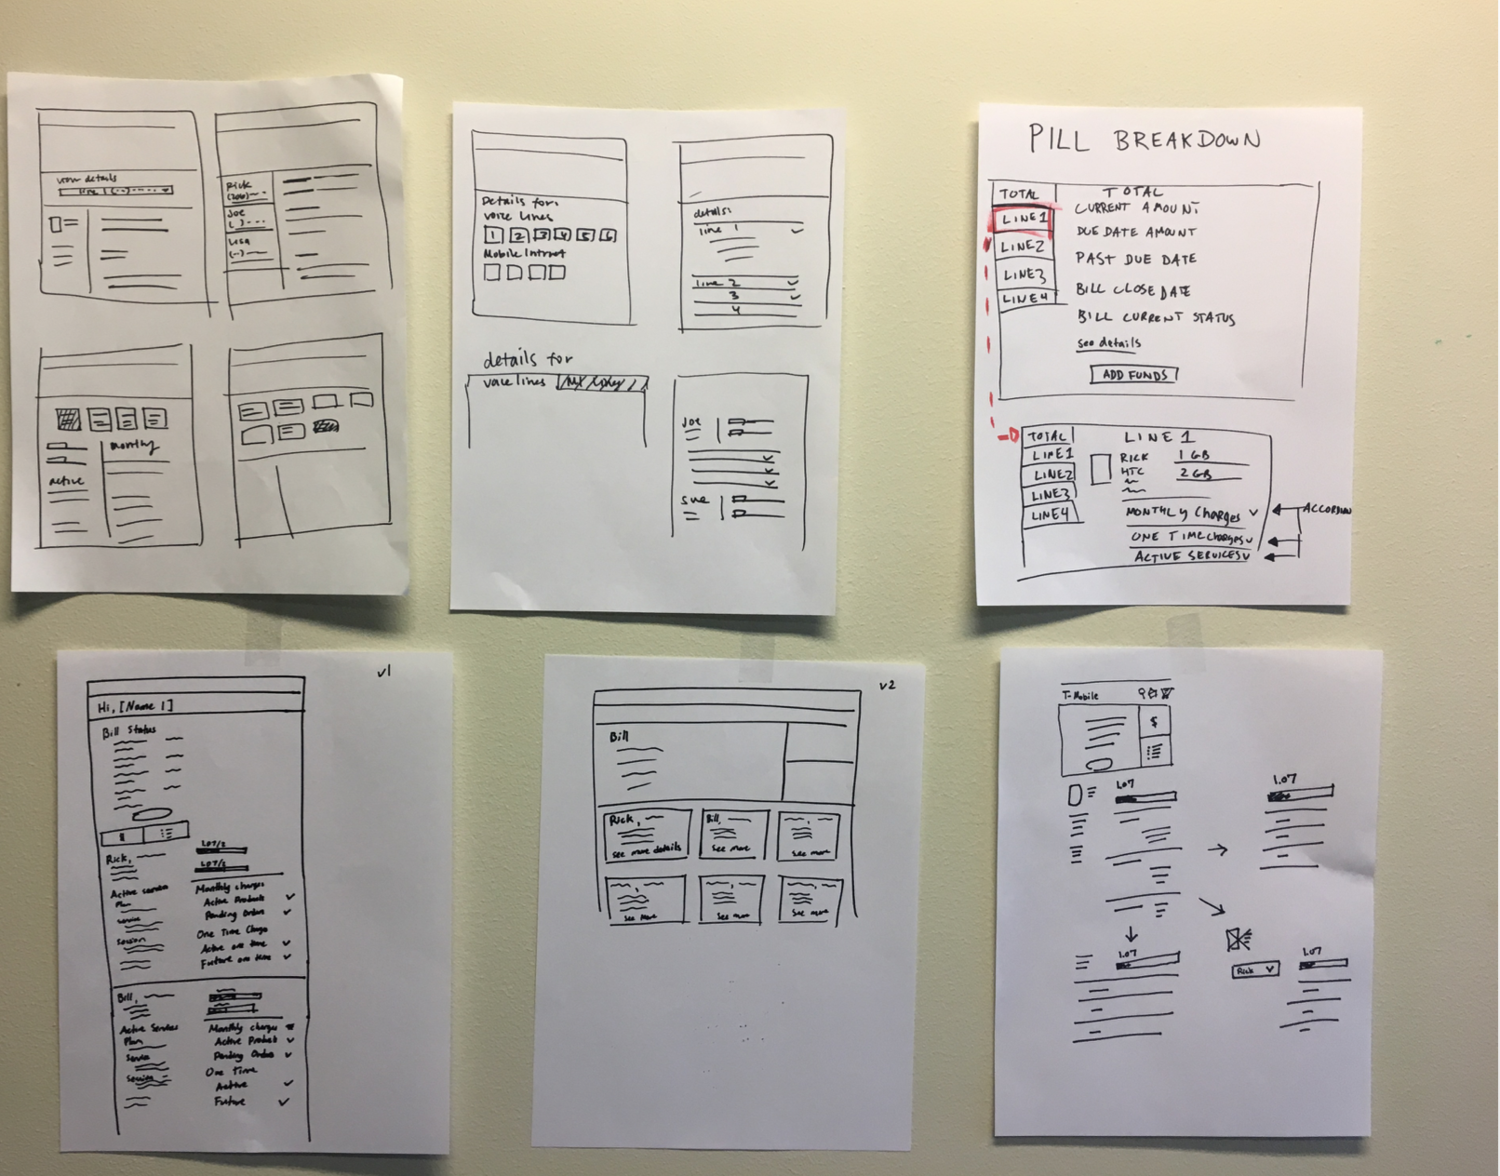 view details
line 1 (--)
Rick
(206)
Joe
( )
Lisa
(--)
monthly
active
Details for:
voice lines
1 2 3 4 5 6
Mobile Internet
details:
line 1
line 2
3
4
details for
voice lines
Joe
Sue
PILL BREAKDOWN
TOTAL
LINE 1
LINE2
LINE3
LINE4
TOTAL
CURRENT AMOUNT
DUE DATE AMOUNT
PAST DUE DATE
BILL CLOSE DATE
BILL CURRENT STATUS
see details
ADD FUNDS
TOTAL
LINE1
LINE2
LINE3
LINE4
LINE 1
RICK
HTC
1 GB
2 GB
MONTHLY Charges
ONE TIME charges
ACTIVE SERVICES
v1
Hi, [Name 1]
Bill Status
$
Rick,
Active service
Plan
Service
Session
Monthly charges
Active Products
Pending Orders
One Time Charge
Active one time
Future one time
Bill,
Active Services
Plan
Service
Monthly charges
Active Product
Pending Orders
One Time
Active
Future
v2
Bill
Rick,
see more details
Bill,
see more
see more
see more
see more
see more
T-Mobile
$
1.07
1.07
1.07
Rick
1.07